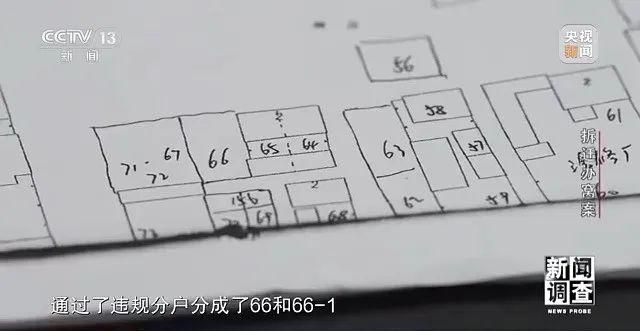 CCTV 13
新闻
央视
新闻
56
2
58
61
71-67
72
66
65
64
63
57
2
69
68
59
拆迁办窝案
通过了违规分户分成了66和66-1
新闻
调查
NEWS PROBE